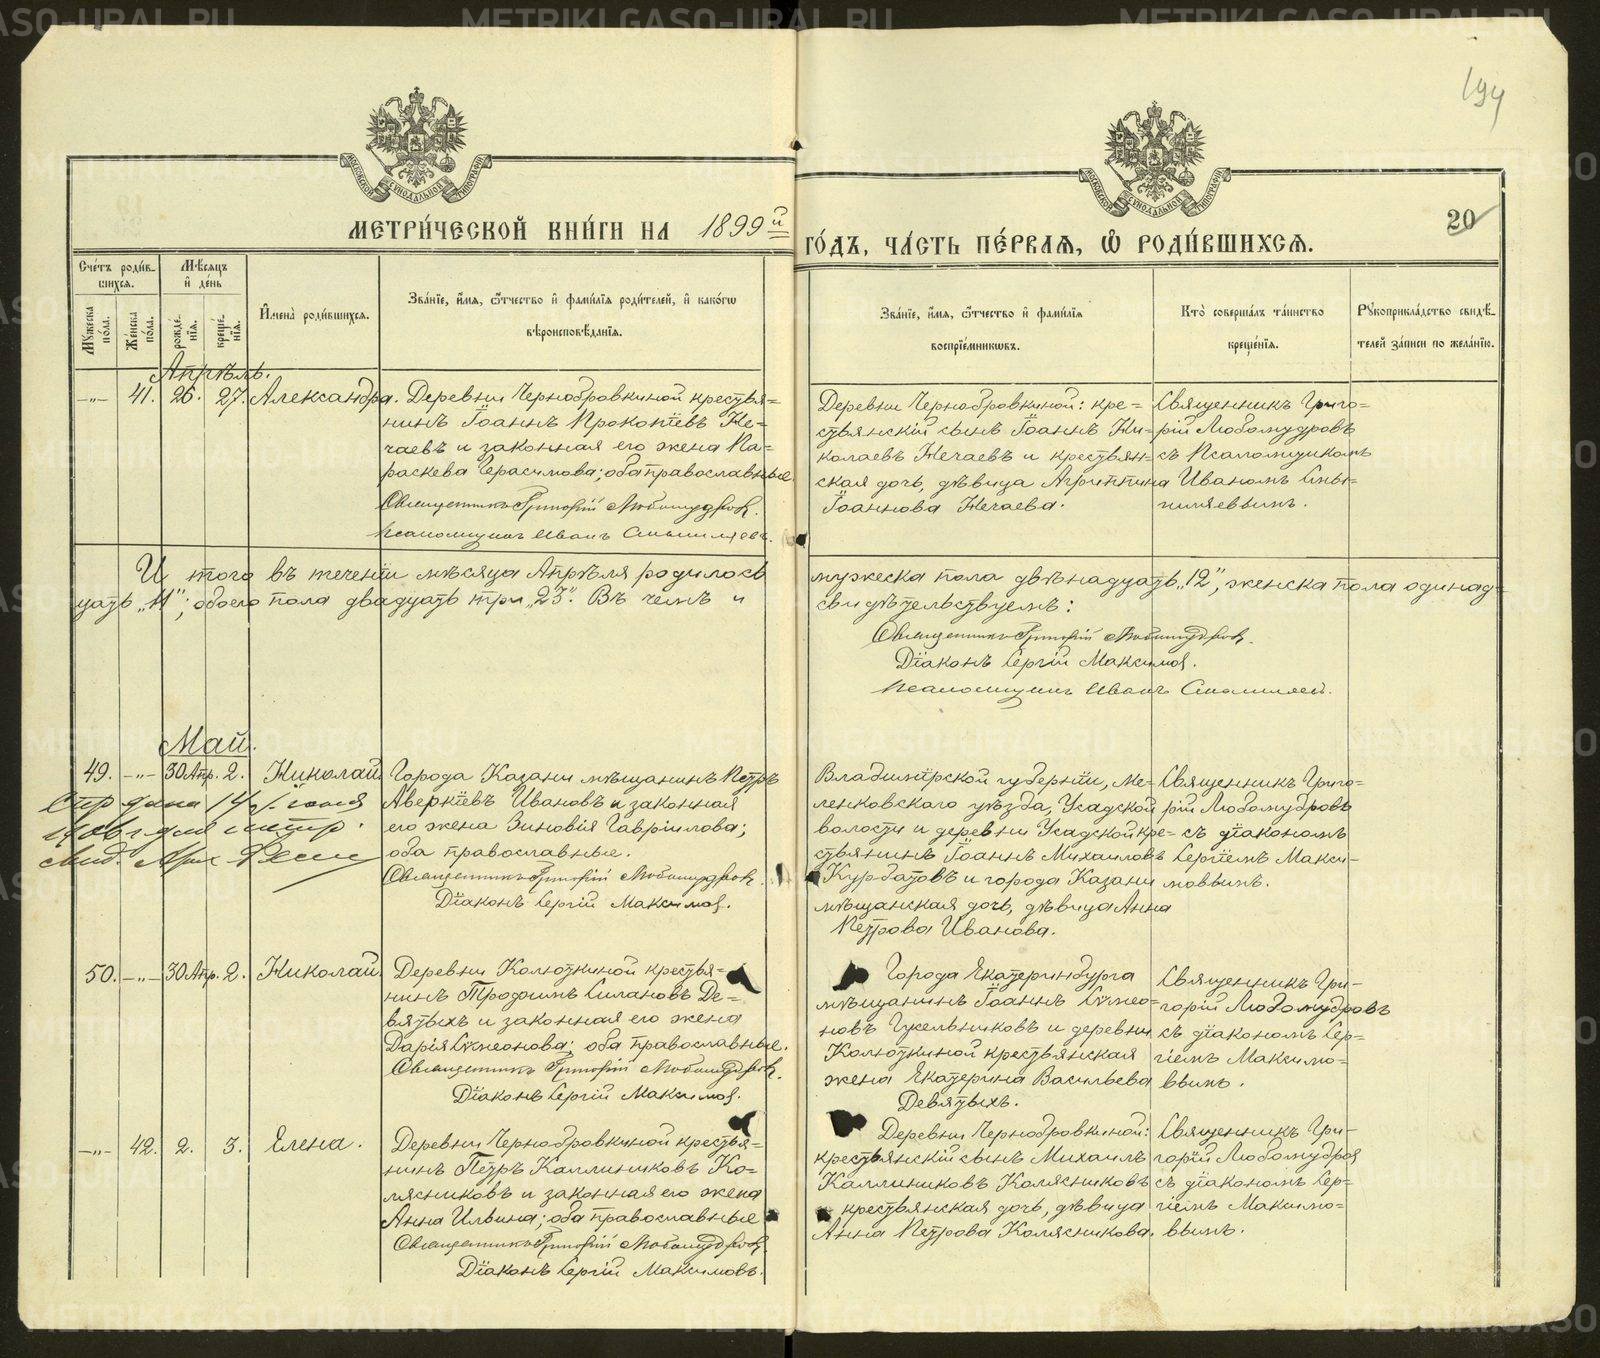 METRIKI.GASO-URAL.RU
194
МОСКОВСКОЙ СѴНОДАЛЬНОЙ ТИПОГРАФІИ
МОСКОВСКОЙ СѴНОДАЛЬНОЙ ТИПОГРАФІИ
МЕТРИ́ЧЕСКОЙ КНИ́ГИ НА 1899й ГО́ДЪ, ЧА́СТЬ ПЕ́РВАѦ, Ѿ РОДИ́ВШИХСѦ.
20
Сче́тъ роди́вшихся.
Му́жеска по́ла.
Же́нска по́ла.
Мѣ́сяцъ и҆ де́нь
рожде́нїѧ.
креще́нїѧ.
И҆мена̀ роди́вшихся.
Зва́нїе, и҆́мѧ, ѻ҆́тчество и҆ фами́лїѧ роди́телей, и҆ како́гѡ
вѣроисповѣ́данїѧ.
Зва́нїе, и҆́мѧ, ѻ҆́тчество и҆ фами́лїѧ
воспрїе́мникѡвъ.
Кто̀ соверша́лъ та́инство
креще́нїѧ.
Рꙋкоприкла́дство свидѣ́-
телей за́писи по жела́нїю.
Апрѣль.
-"- 41. 26. 27. Александра.
Деревни Чернобровкиной крестья=
нинъ Їоаннъ Прокопїевъ Не=
чаевъ и законная его жена Па=
раскева Герасимова; оба православные
Священникъ Григорій Любомудровъ.
Псаломщикъ Иванъ
Деревни Чернобровкиной: кре=
стьянскій сынъ Їоаннъ Ни=
колаевъ Нечаевъ и крестьян=
ская дочь, дѣвица Агриппина
Їоаннова Нечаева.
Священникъ Григо=
рій Любомудровъ
съ Псаломщикомъ
Иваномъ
И того въ теченіи мѣсяца Апрѣля родилось мужеска пола двѣнадцать „12", женска пола одинад=
цать „11"; обоего пола двадцать три „23". Въ чемъ и свидѣтельствуемъ:
Священникъ Григорій Любомудровъ.
Дїаконъ Сергій Максимов.
Псаломщикъ Иванъ
Май.
49. -"- 30 Апр. 2. Николай.
Города Казани мѣщанинъ Петръ
Аверкїевъ Ивановъ и законная
его жена Зиновія Гавріилова;
оба православные.
Священникъ Григорій Любомудровъ.
Дїаконъ Сергій Максимов.
Владимїрской губерніи, Ме=
ленковскаго уѣзда, Усадской
волости и деревни Усадской кре=
стьянинъ Їоаннъ Михаиловъ
Курбатовъ и города Казани
мѣщанская дочь, дѣвица Анна
Петрова Иванова.
Священникъ Григо=
рій Любомудровъ
съ дїакономъ
Сергїемъ Макси=
мовымъ.
50. -"- 30 Апр. 2. Николай.
Деревни Колюткиной крестья=
нинъ Трофимъ Силановъ Де=
вятыхъ и законная его жена
Дарія Сѵмеонова; оба православные.
Священникъ Григорій Любомудровъ.
Дїаконъ Сергій Максимов.
Города Екатеринбурга
мѣщанинъ Їоаннъ Сѵмео=
новъ и деревни
Колюткиной крестьянская
жена Екатерина Васильева
Девятыхъ.
Священникъ Гри=
горій Любомудровъ
съ дїакономъ Сер=
гіемъ Максимо=
вымъ.
-"- 42. 2. 3. Елена.
Деревни Чернобровкиной крестья=
нинъ Петръ Каллиниковъ Ко=
лясниковъ и законная его жена
Анна Ильина; оба православные
Священникъ Григорій Любомудровъ
Дїаконъ Сергій Максимовъ.
Деревни Чернобровкиной:
крестьянскій сынъ Михаилъ
Каллиниковъ Колясниковъ
крестьянская дочь, дѣвица
Анна Петрова Колясникова.
Священникъ Гри=
горій Любомудров
съ дїакономъ Сер=
гіемъ Максимо=
вымъ.